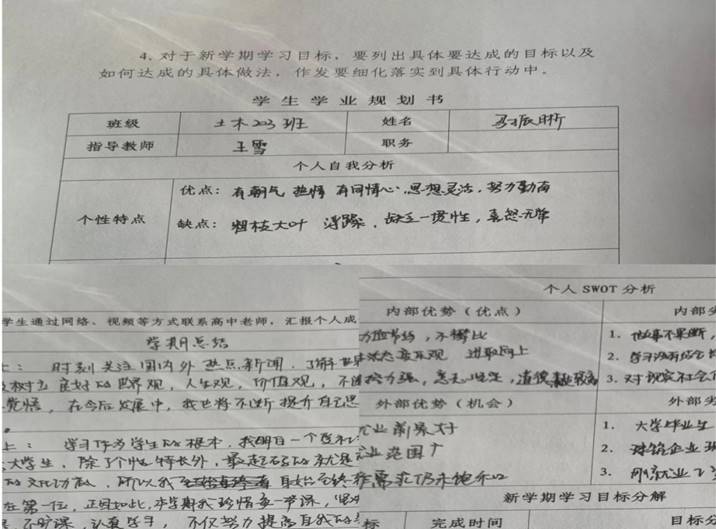 4、对于新学期学习目标，要列出具体要达成的目标以及
如何达成的具体做法，作发要细化落实到具体行动中。
学生学业规划书
班级 土木203班 姓名
指导教师 王雪 职务
个人自我分析
个性特点
优点：有朝气 热情 有同情心、思想灵活，努力勤奋
缺点：粗枝大叶 浮躁，缺乏一贯性，喜怒无常
学生通过网络、视频等方式联系高中老师，汇报个人成
学期总结
上：时刻关注国内外热点新闻，了解
树立良好的世界观，人生观，价值观，不
觉悟，在今后发展中，我也将不断提升自己思
上：学习作为学生的根本，我明白一个
大学生，除了个性特长外，最起码的就是
的文化功底，所以我 自始至终
在第一位，正因如此，本学期我珍惜每一节课，
不旷课，认真学习，不仅努力提高自我的
个人 SWOT 分析
内部优势（优点）
内部劣
不攀比
乐观 进取向上
强，意志坚定，道德
1. 做事不果断，
2.
3. 对现实社会
外部优势（机会）
外部劣
就业前景好
就业范围广
需求仍未饱和
1. 大学毕业生
2. 建筑企业
3. 刚就业
新学期学习目标分解
标 完成时间 目标分